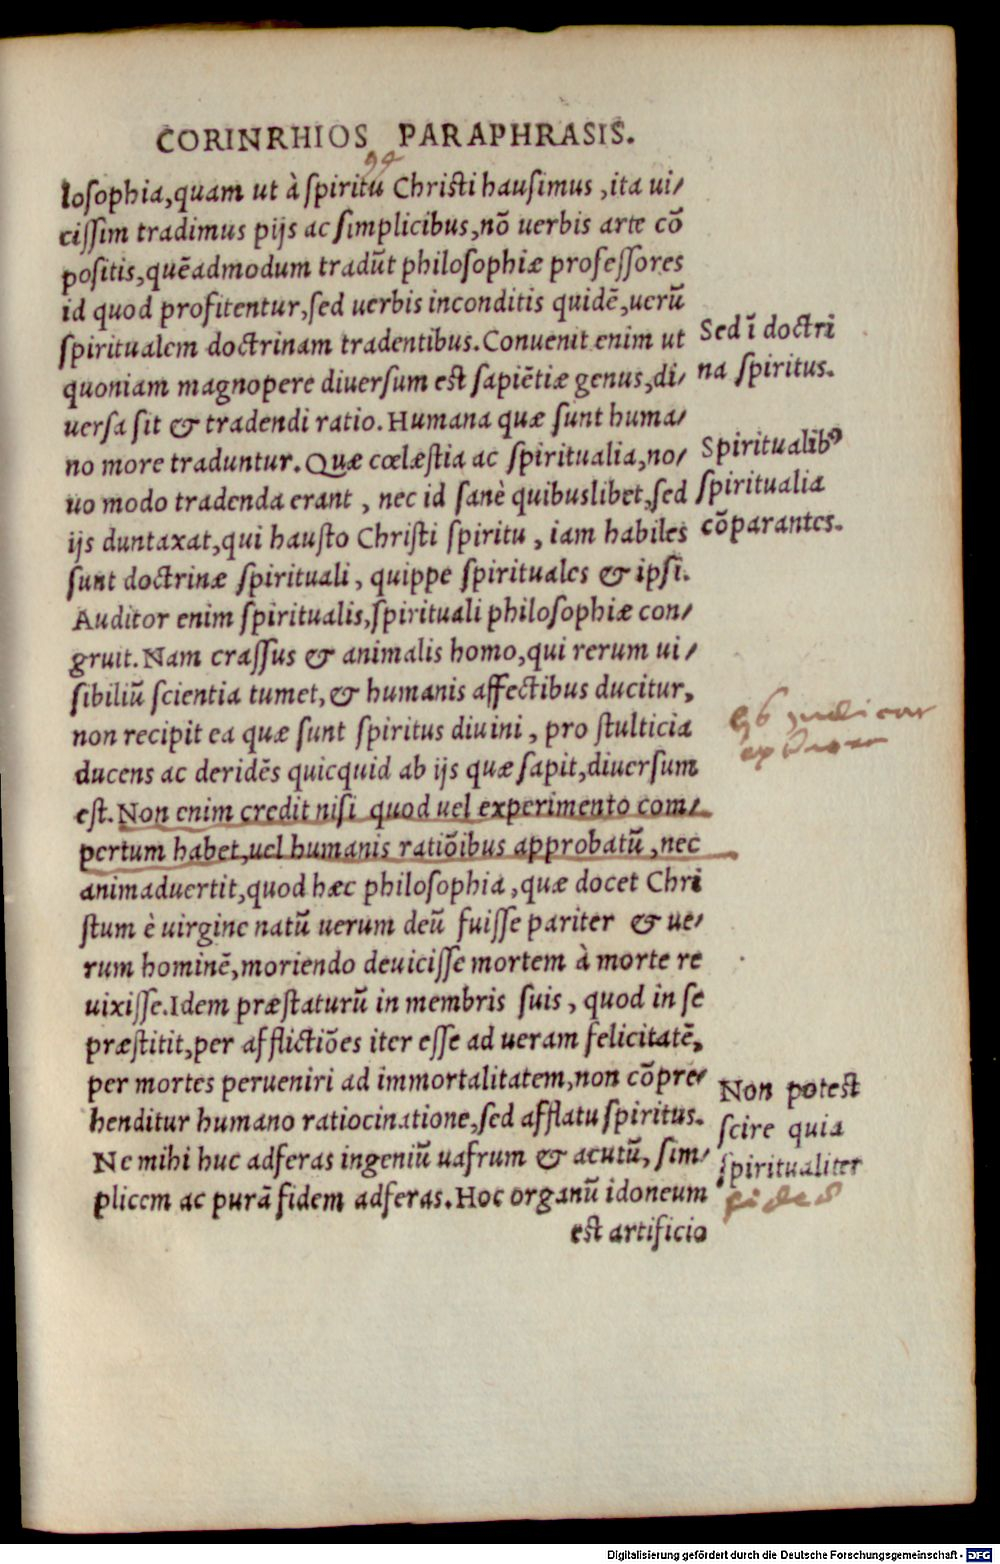 CORINRHIOS PARAPHRASIS.
losophia,quam ut à spiritu Christi hausimus ,ita ui/
cissim tradimus pijs ac simplicibus,nō uerbis arte cō
positis,quēadmodum tradūt philosophiæ professores
id quod profitentur,sed uerbis inconditis quidē,uerū
spiritualem doctrinam tradentibus.Conuenit enim ut
quoniam magnopere diuersum est sapiētiæ genus,di/
uersa sit & tradendi ratio.Humana quæ sunt huma/
no more traduntur.Quæ cœlæstia ac spiritualia,no/
uo modo tradenda erant , nec id sanè quibuslibet,sed
ijs duntaxat,qui hausto Christi spiritu , iam habiles
sunt doctrinæ spirituali , quippe spirituales & ipsi.
Auditor enim spiritualis,spirituali philosophiæ con/
gruit.Nam crassus & animalis homo,qui rerum ui/
sibiliū scientia tumet,& humanis affectibus ducitur,
non recipit ea quæ sunt spiritus diuini , pro stulticia
ducens ac deridēs quicquid ab ijs quæ sapit,diuersum
est.Non enim credit nisi quod uel experimento com/
pertum habet,uel humanis ratiōibus approbatū ,nec
animaduertit,quod hæc philosophia ,quæ docet Chri
stum è uirgine natū uerum deū fuisse pariter & ue/
rum hominē,moriendo deuicisse mortem à morte re
uixisse.Idem præstaturū in membris suis , quod in se
præstitit,per afflictiōes iter esse ad ueram felicitatē,
per mortes perueniri ad immortalitatem,non cōpre/
henditur humano ratiocinatione,sed afflatu spiritus.
Ne mihi huc adferas ingeniū uafrum & acutū, sim/
plicem ac purā fidem adferas.Hoc organū idoneum
est artificio
Sed ī doctri
na spiritus.
Spiritualibꝰ
spiritualia
cōparantes.
Non potest
scire quia
spiritualiter
fides
Digitalisierung gefördert durch die Deutsche Forschungsgemeinschaft - DFG